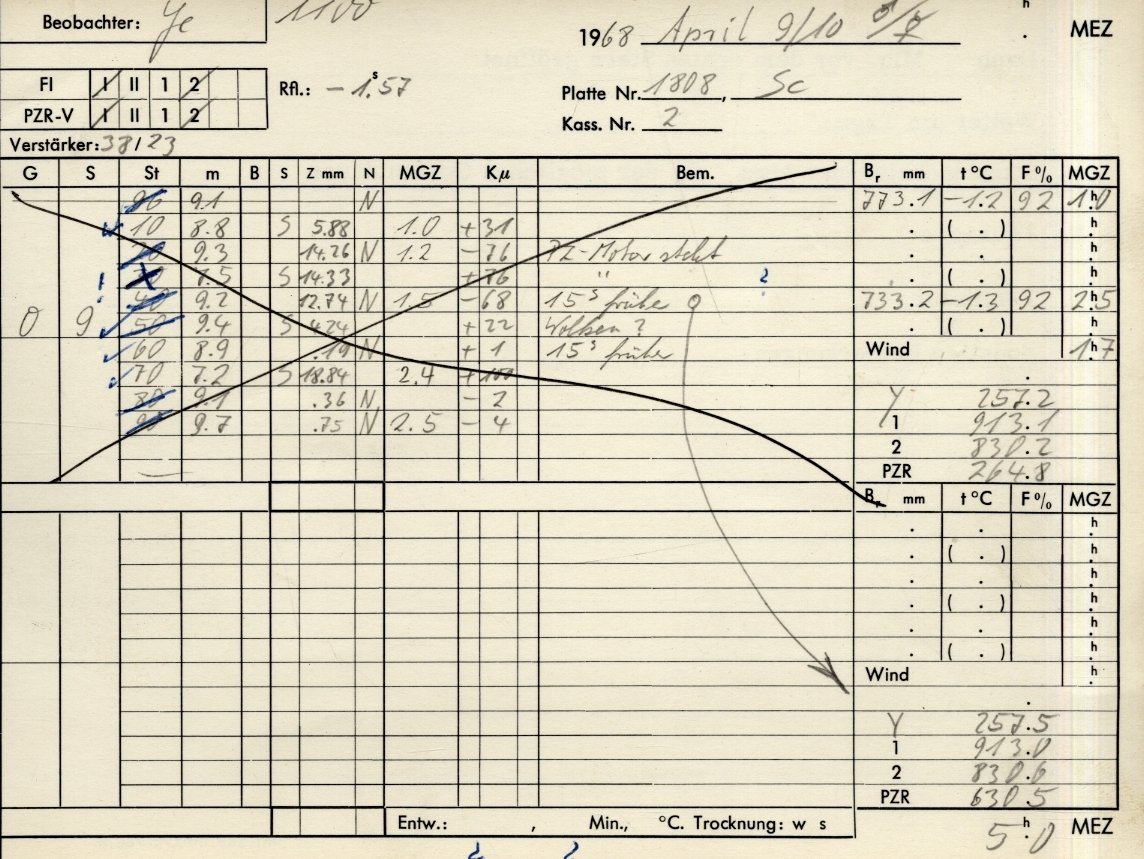 Beobachter: Je 1100
1968 April 9/10 MEZ
FI I II 1 2 Rfl.: - 1.ˢ57
Platte Nr. 1808, Sc
PZR-V I II 1 2
Kass. Nr. 2
Verstärker: 38/23
G S St m B S Z mm N MGZ Kμ Bem. Bᵣ mm t °C F % MGZ
9.1 N 773.1 -1.2 92 1ʰ.0
10 8.8 S 5.88 1.0 +31 . ( . ) ʰ.
9.3 14.26 N 1.2 -76 PZ-Motor steht . . ʰ.
7.5 S 14.33 +76 " . ( . ) ʰ.
40 9.2 12.74 N 1.5 -68 15ˢ frühe 733.2 -1.3 92 2ʰ.5
0 9 50 9.4 S 4.24 +22 Wolken ? . ( . ) ʰ.
60 8.9 .19 N + 1 15ˢ früher Wind 1ʰ.7
70 7.2 S 18.84 2.4 +100 .
80 9.1 .36 N - 2 Y 257.2
90 9.7 .75 N 2.5 - 4 1 913.1
2 830.2
PZR 264.8
Bᵣ mm t °C F % MGZ
. . ʰ.
. ( . ) ʰ.
. . ʰ.
. ( . ) ʰ.
. . ʰ.
. ( . ) ʰ.
Wind ʰ.
.
Y 257.5
1 913.0
2 830.6
PZR 630.5
Entw.: , Min., °C. Trocknung: w s 5ʰ.0 MEZ